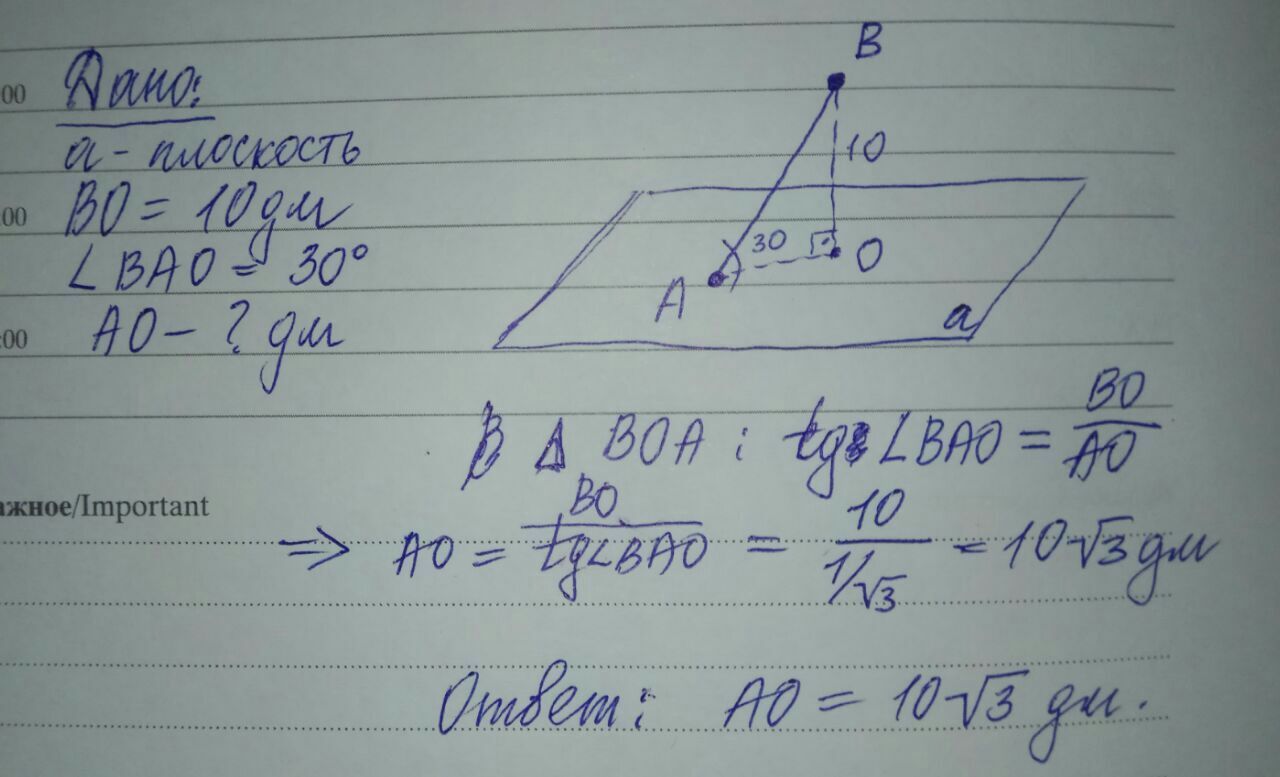 00 Дано:
a - плоскость
00 BO = 10 дм
∠BAO = 30°
:00 AO - ? дм
B
10
30
O
A
a
В Δ BOA : tg ∠BAO = BO/AO
ажное/Important
⇒ AO = BO/tg∠BAO = 10/1/√3 = 10√3 дм
Ответ: AO = 10√3 дм.